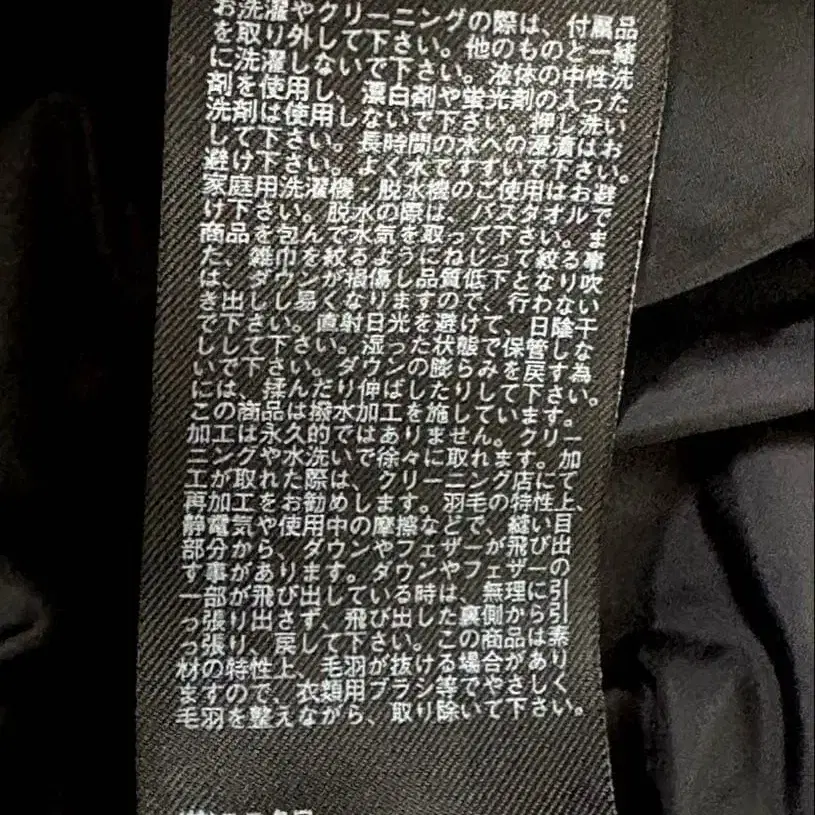 お洗濯やクリーニングの際は、付属品
を取り外して下さい。他のものと一緒
に洗濯しないで下さい。液体の中性洗
剤を使用し、漂白剤や蛍光剤の入った
洗剤は使用しないで下さい。押し洗い
して下さい。長時間の水への浸漬はお
避け下さい。よく水ですすいで下さい。
家庭用洗濯機・脱水機のご使用はお避
け下さい。脱水の際は、バスタオルで
商品を包んで水気を取って下さい。ま
た、雑巾を絞るようにねじって絞る事
は、ダウンが損傷し品質低下となり吹
き出しし易くなりますので、行わない
で下さい。直射日光を避けて、日陰干
しして下さい。湿った状態で保管しな
いで下さい。ダウンの膨らみを戻す為
には、揉んだり伸ばしたりして下さい。
この商品は撥水加工を施しています。
加工は永久的ではありません。クリー
ニングや水洗いで徐々に取れます。加
工が取れた際は、クリーニング店にて
再加工をお勧めします。羽毛の特性上、
静電気や使用中の摩擦などで、縫い目
部分から、ダウンやフェザーが飛び出
す事があります。ダウンやフェザーの
一部が飛び出している時は、無理に引
っ張り出さず、飛び出した裏側から引
っ張り、戻して下さい。この商品は素
材の特性上、毛羽が抜ける場合があり
ますので、衣類用ブラシ等でやさしく
毛羽を整えながら、取り除いて下さい。